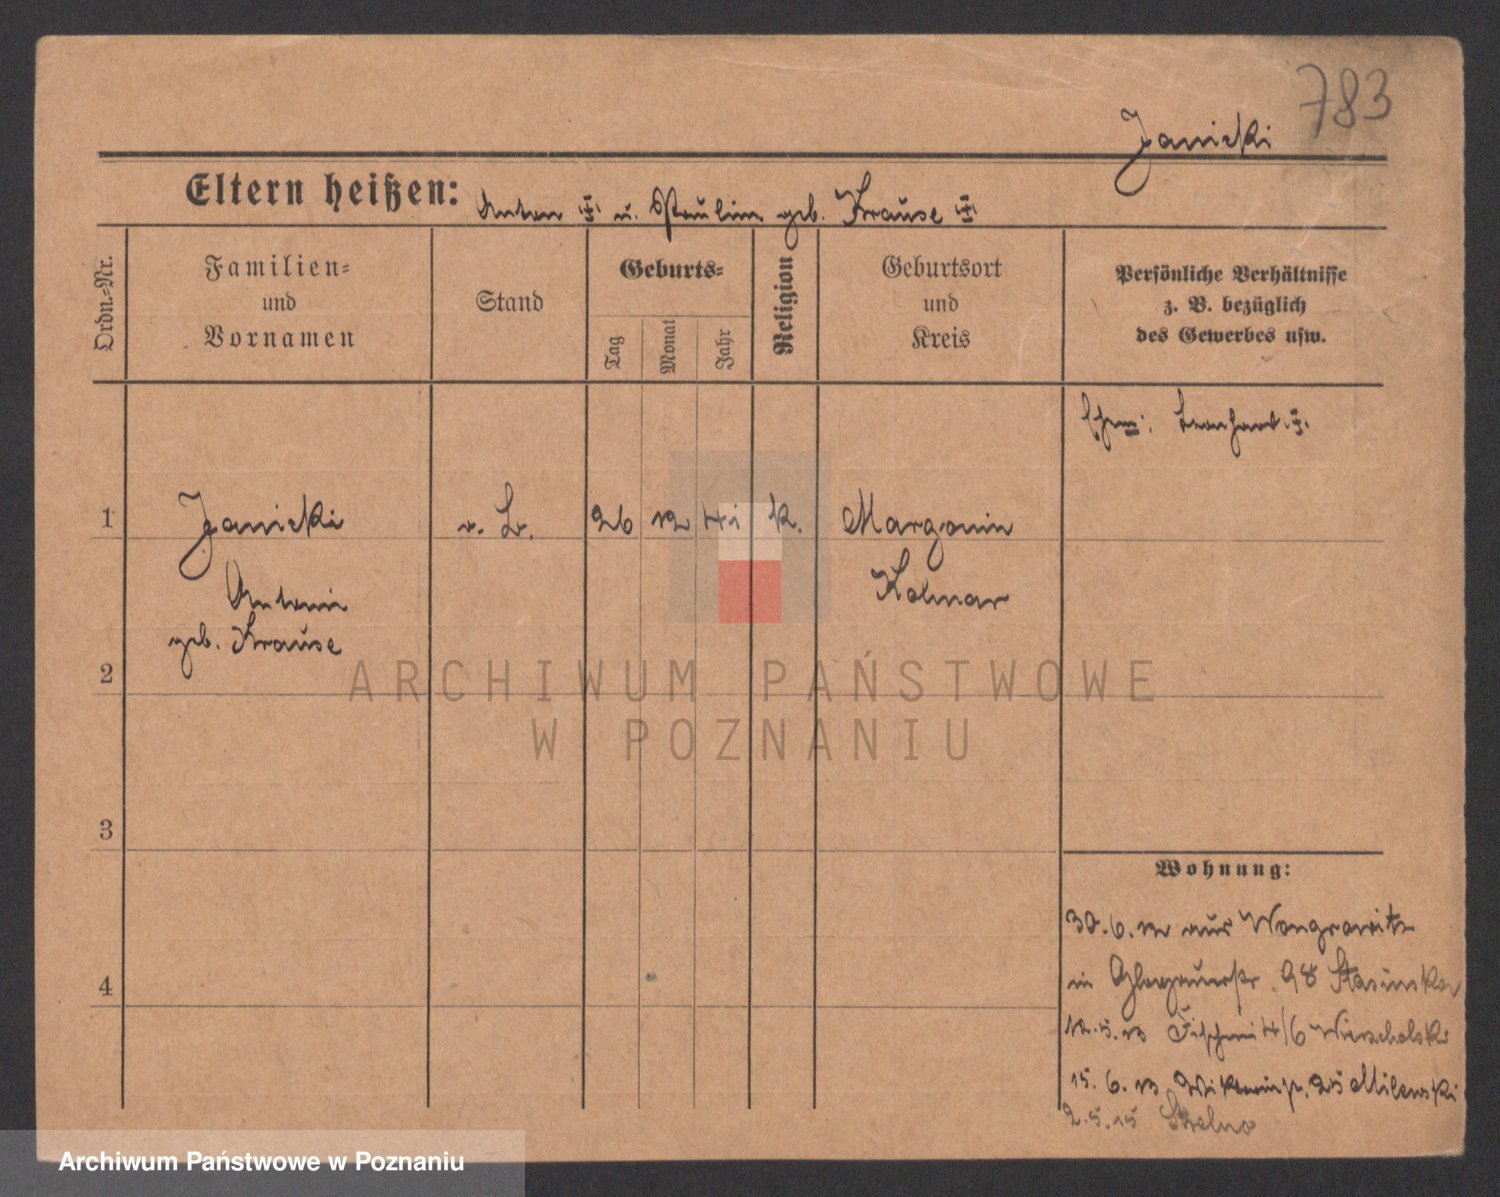 783
Janicki
Eltern heißen: Anton ‡ u. Paulin geb. Krause ‡
Ordn.-Nr.
Familien-
und
Vornamen
Stand
Geburts-
Tag
Monat
Jahr
Religion
Geburtsort
und
Kreis
Persönliche Verhältnisse
z. B. bezüglich
des Gewerbes usw.
Ehem: Leonhard ‡
1
Janicki
26
12
41
k.
Margonin
Kolmar
geb. Krause
2
ARCHIWUM PAŃSTWOWE
W POZNANIU
3
4
Wohnung:
30.6.12 aus Wongrowitz
in Glogauerstr. 98 Stasinska
12.5.13 Fischerei 4/6 Wierscholski
15.6.13 25 Milewski
2.5.15 Strelno
Archiwum Państwowe w Poznaniu